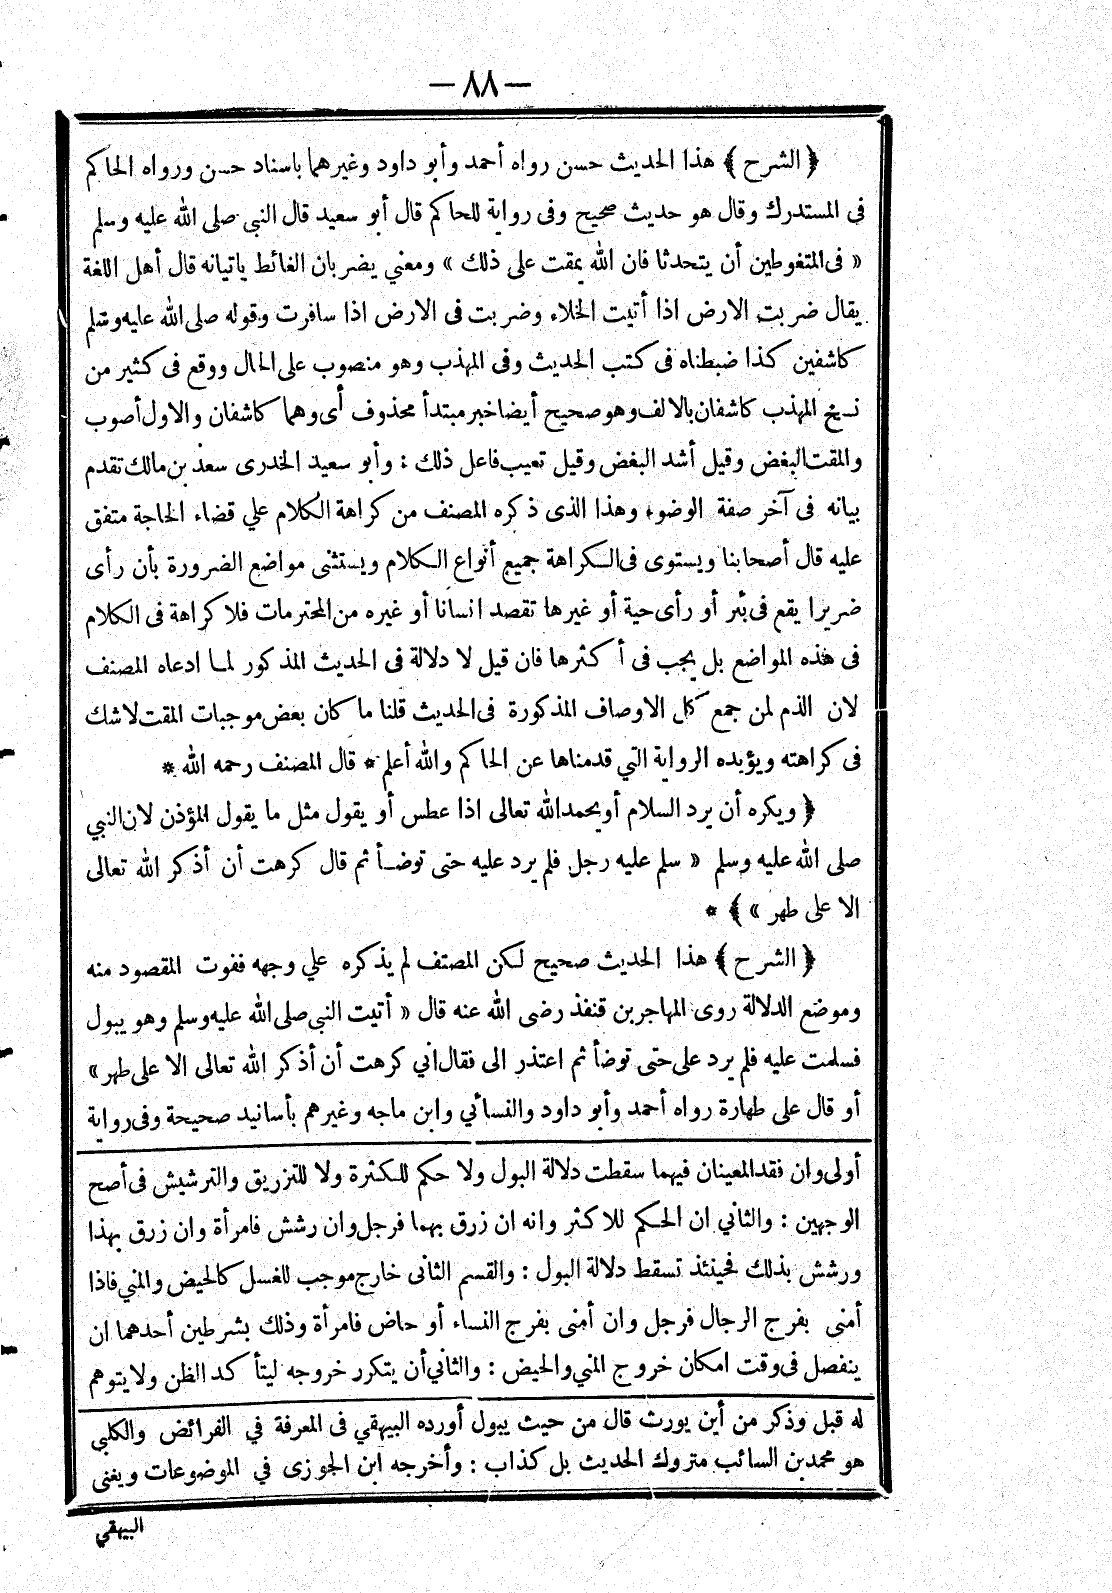 — ٨٨ —
﴿ الشرح ﴾ هذا الحديث حسن رواه أحمد وأبو داود وغيرهما باسناد حسن ورواه الحاكم
فى المستدرك وقال هو حديث صحيح وفى رواية للحاكم قال أبو سعيد قال النبي صلى الله عليه وسلم
« فى المتغوطين أن يتحدثا فان الله يمقت على ذلك » ومعني يضربان الغائط ياتيانه قال أهل اللغة
يقال ضربت الارض اذا أتيت الخلاء وضربت فى الارض اذا سافرت وقوله صلى الله عليه وسلم
كاشفين كذا ضبطناه فى كتب الحديث وفى المهذب وهو منصوب على الحال ووقع فى كثير من
نسخ المهذب كاشفان بالالف وهو صحيح أيضا خبر مبتدأ محذوف أى وهما كاشفان والاول أصوب
والمقت البغض وقيل أشد البغض وقيل تعيب فاعل ذلك : وأبو سعيد الخدرى سعد بن مالك تقدم
بيانه فى آخر صفة الوضوء وهذا الذى ذكره المصنف من كراهة الكلام علي قضاء الحاجة متفق
عليه قال أصحابنا ويستوى فى الكراهة جميع أنواع الكلام ويستثنى مواضع الضرورة بأن رأى
ضريرا يقع فى بئر أو رأى حية أو غيرها تقصد انسانا أو غيره من المحترمات فلا كراهة فى الكلام
فى هذه المواضع بل يجب فى أكثرها فان قيل لا دلالة فى الحديث المذكور لما ادعاه المصنف
لان الذم لمن جمع كل الاوصاف المذكورة فى الحديث قلنا ما كان بعض موجبات المقت لاشك
فى كراهته ويؤيده الرواية التي قدمناها عن الحاكم والله أعلم * قال المصنف رحمه الله *
﴿ ويكره أن يرد السلام أو يحمد الله تعالى اذا عطس أو يقول مثل ما يقول المؤذن لان النبي
صلى الله عليه وسلم « سلم عليه رجل فلم يرد عليه حتى توضأ ثم قال كرهت أن أذكر الله تعالى
الا على طهر » ﴾ *
﴿ الشرح ﴾ هذا الحديث صحيح لكن المصنف لم يذكره علي وجهه ففوت المقصود منه
وموضع الدلالة روى المهاجر بن قنفذ رضى الله عنه قال « أتيت النبي صلى الله عليه وسلم وهو يبول
فسلمت عليه فلم يرد على حتى توضأ ثم اعتذر الى فقال اني كرهت أن أذكر الله تعالى الا على طهر »
أو قال على طهارة رواه أحمد وأبو داود والنسائي وابن ماجه وغيرهم بأسانيد صحيحة وفى رواية
أولى وان فقد المعينان فيهما سقطت دلالة البول ولا حكم للكثرة ولا للتزريق والترشيش فى أصح
الوجهين : والثاني ان الحكم للاكثر وانه ان زرق بهما فرجل وان رشش فامرأة وان زرق بهذا
ورشش بذلك فحينئذ تسقط دلالة البول : والقسم الثانى خارج موجب للغسل كالحيض والمني فاذا
أمنى بفرج الرجال فرجل وان أمنى بفرج النساء أو حاض فامرأة وذلك بشرطين أحدهما ان
ينفصل فى وقت امكان خروج المني والحيض : والثاني أن يتكرر خروجه ليتأكد الظن ولا يتوهم
له قبل وذكر من أين يورث قال من حيث يبول أورده البيهقي فى المعرفة في الفرائض والكلبي
هو محمد بن السائب متروك الحديث بل كذاب : وأخرجه ابن الجوزى في الموضوعات ويغنى
البيهقي